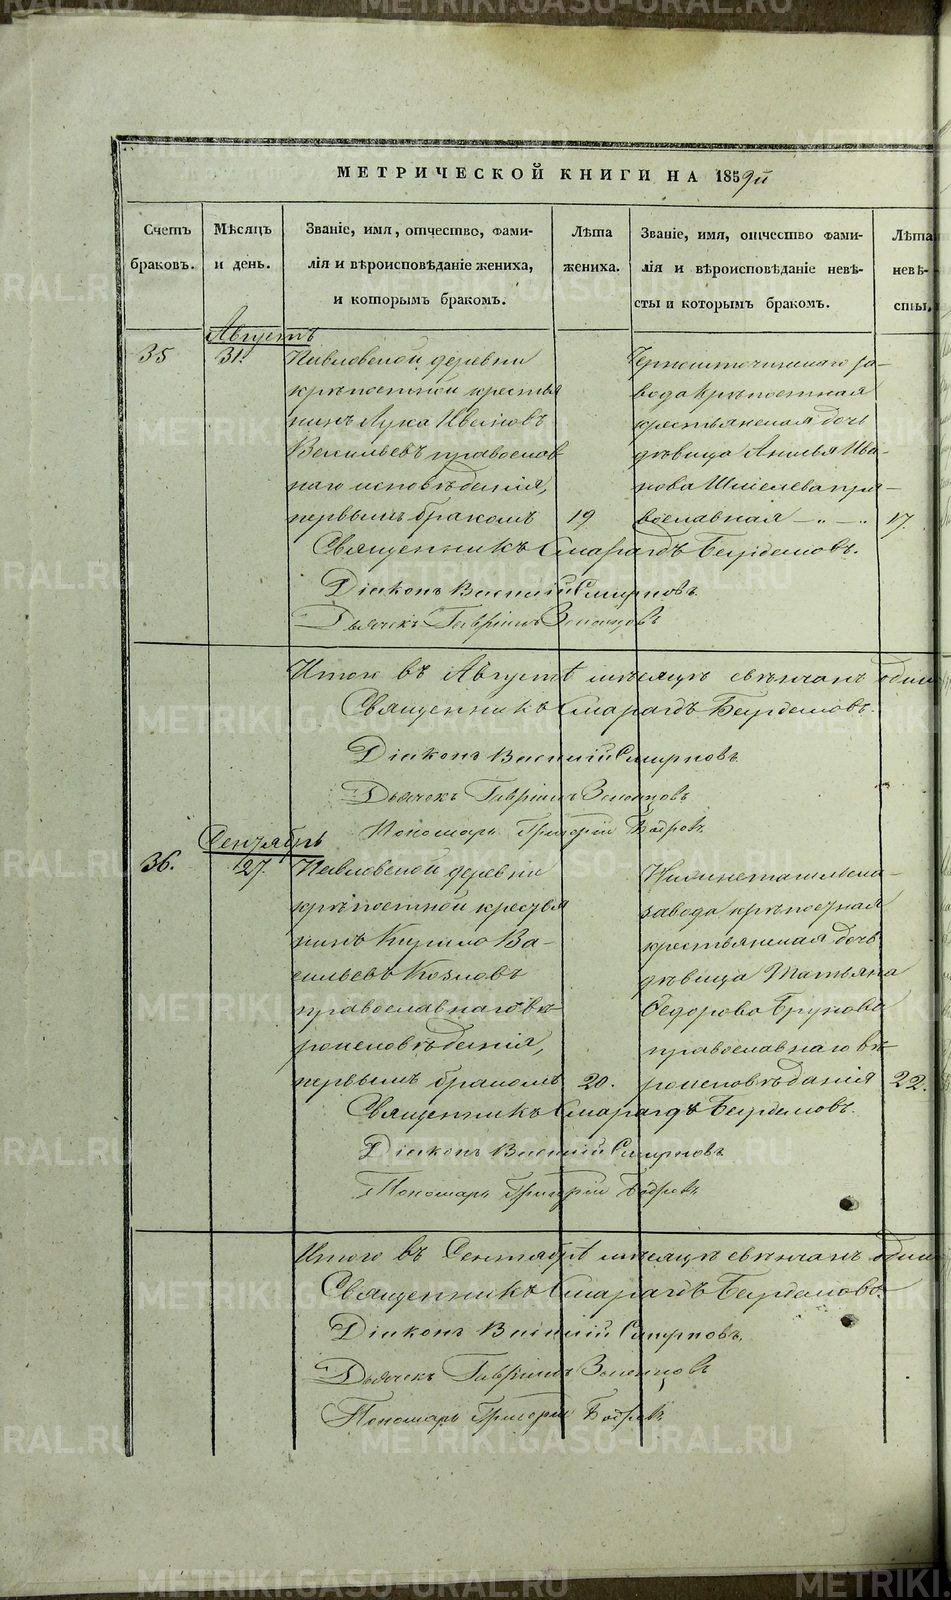 МЕТРИЧЕСКОЙ КНИГИ НА 1859й
Счетъ браковъ.
Мѣсяцъ и день.
Званіе, имя, отчество, фами-
лія и вѣроисповѣданіе жениха,
и которымъ бракомъ.
Лѣта жениха.
Званіе, имя, отчество фами-
лія и вѣроисповѣданіе невѣ-
сты и которымъ бракомъ.
Лѣта
невѣ-
сты,
Августъ
35
31.
Павловской деревни
крѣпостной крестья
нинъ Лука Ивановъ
Васильевъ православ
наго исповѣданія,
первымъ бракомъ
19
Черноисточинскаго за-
вода крѣпостная
крестьянская дочь
дѣвица Ива-
нова Шмелева пра-
вославная
17.
Священникъ Смарагдъ
Діаконъ Василій Смирновъ
Дьячекъ Гавріилъ
Итого въ Августѣ мѣсяцѣ свѣнчанъ
Священникъ Смарагдъ
Діаконъ Василій Смирновъ
Дьячекъ Гавріилъ
Пономарь Григорій Бодровъ
Сентябрь
36.
27.
Павловской деревни
крѣпостной крестья
нинъ Кирило Ва-
сильевъ Козловъ
православнаго вѣ
роисповѣданія,
первымъ бракомъ
20.
Нижнетагильска-
завода крѣпостная
крестьянская дочь
дѣвица Татьяна
Федорова
православнаго вѣ-
роисповѣданія
22.
Священникъ Смарагдъ
Діаконъ Василій Смирновъ
Пономарь Григорій Бодровъ
Итого въ Сентябрѣ мѣсяцѣ свѣнчанъ
Священникъ Смарагдъ
Діаконъ Василій Смирновъ
Дьячекъ Гавріилъ
Пономарь Григорій Бодровъ
METRIKI.GASO-URAL.RU